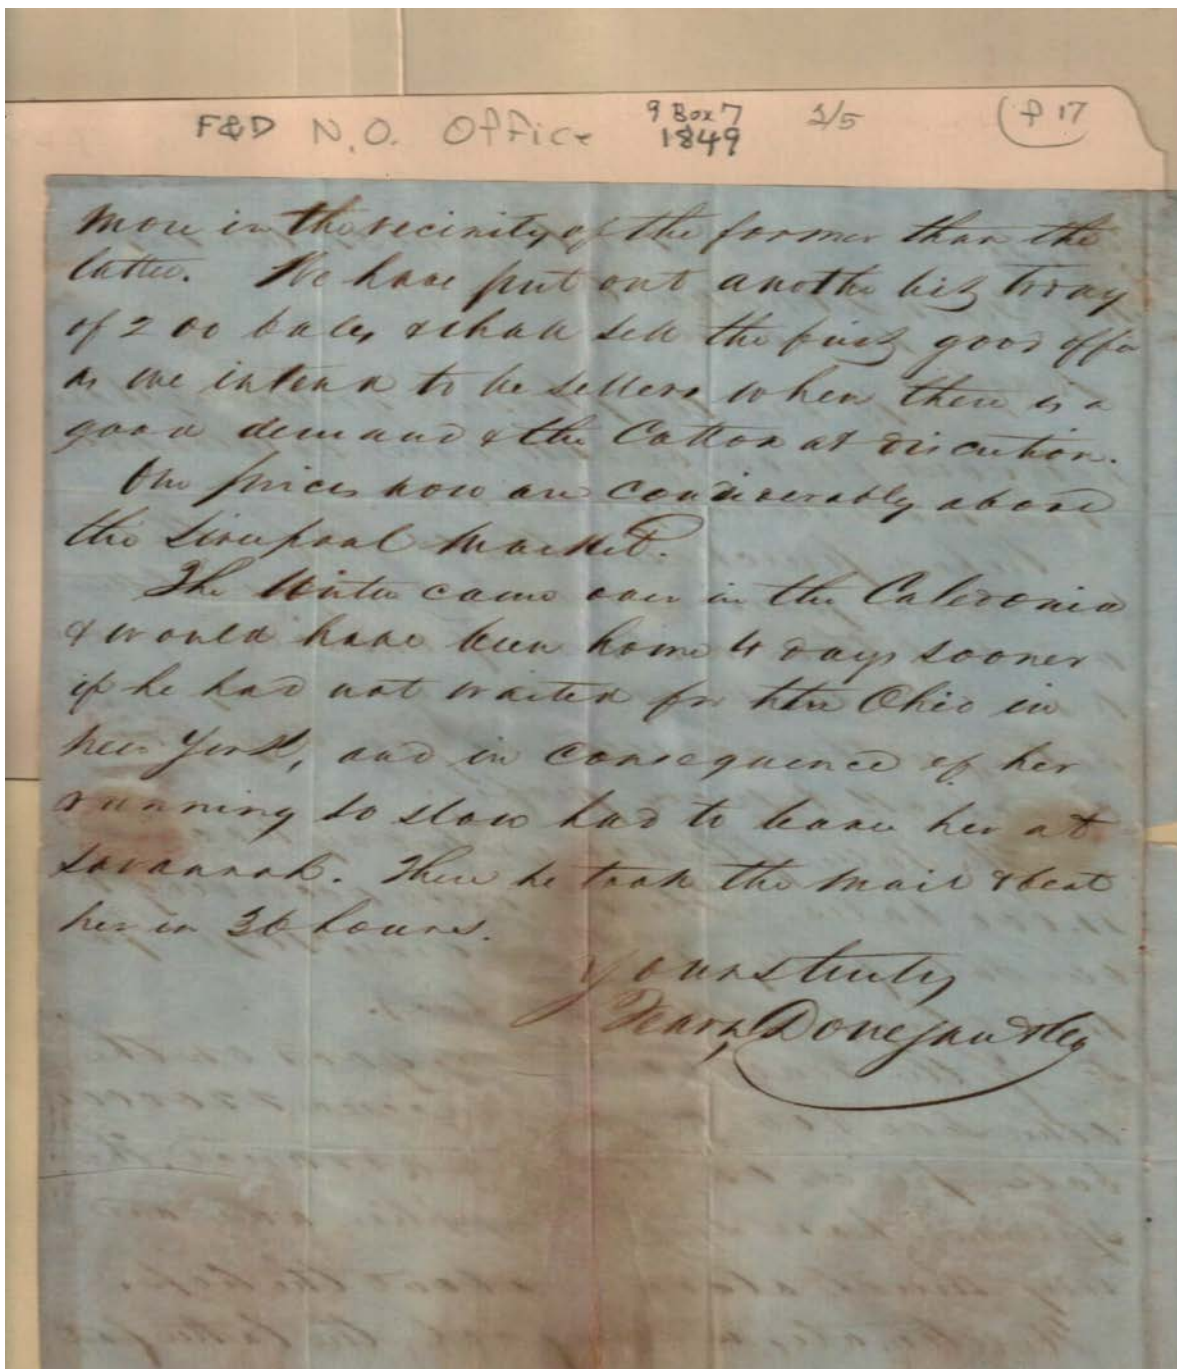 F&D N.O. Office 9 Box 7 1849 2/5 (f 17
more in the vicinity of the former than the
latter. We have put out another list today
of 200 bales & shall sell the first good offer
as we intend to be sellers when there is a
good demand & the Cotton at discretion.
Our prices now are considerably above
the Liverpool Market.
The Writer came over in the Caledonia
& would have been home 4 days sooner
if he had not waited for the Ohio in
New York, and in consequence of her
running so slow had to leave her at
Savannah. There he took the Mail & beat
her in 36 hours.
Yours truly
Fearn, Donegan & Co